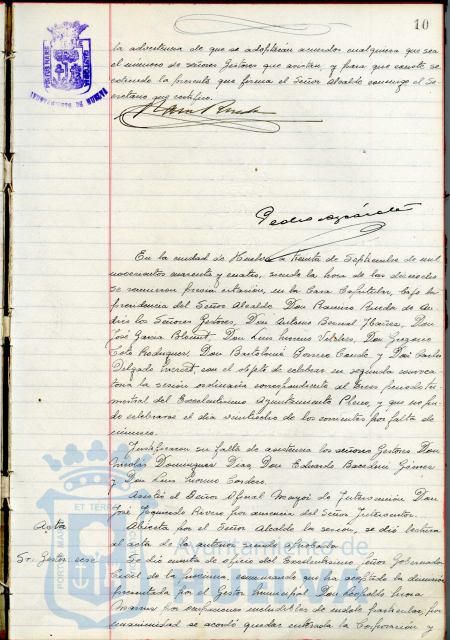 10
la advertencia de que se adoptarán acuerdos cualquiera que sea
el número de señores Gestores que asistan, y para que conste se
extiende la presente que firma el Señor Alcalde conmigo el Se-
cretario que certifico.
Pedro
En la ciudad de Huelva a treinta de Septiembre de mil
novecientos cuarenta y cuatro, siendo la hora de las
se reunieron previa citación, en la Casa Capitular, bajo la
presidencia del Señor Alcalde Don Ramiro Rueda de An-
drés los Señores Gestores, Don Antonio Bernal Don
José García Don Luis Moreno Don Gregorio
Rodríguez, Don Bartolomé Borrero Conde y Don Carlos
Delgado con el objeto de celebrar en segunda convoca-
toria la sesión ordinaria correspondiente al tercer período tri-
mestral del Excelentísimo Ayuntamiento Pleno, y que no pu-
do celebrarse el día veintiocho de los corrientes por falta de
número.
Justificaron su falta de asistencia los señores Gestores, Don
Nicolás Domínguez Díaz, Don Eduardo Gómez
y Don Luis Moreno Cordero.
Asistió el Señor Oficial Mayor de Intervención Don
José Rivero por ausencia del Señor Interventor.
Acta
Abierta por el Señor Alcalde la sesión, se dió lectura
al acta de la anterior siendo aprobada.
Sr. Gestor cese
Se dió cuenta de oficio del Excelentísimo Señor Gobernador
Civil de la provincia, comunicando que ha aceptado la dimisión
presentada por el Gestor Municipal Don Leopoldo
por ocupaciones ineludibles de índole particular, por
unanimidad se acordó quedar enterada la Corporación y
Ayuntamiento de